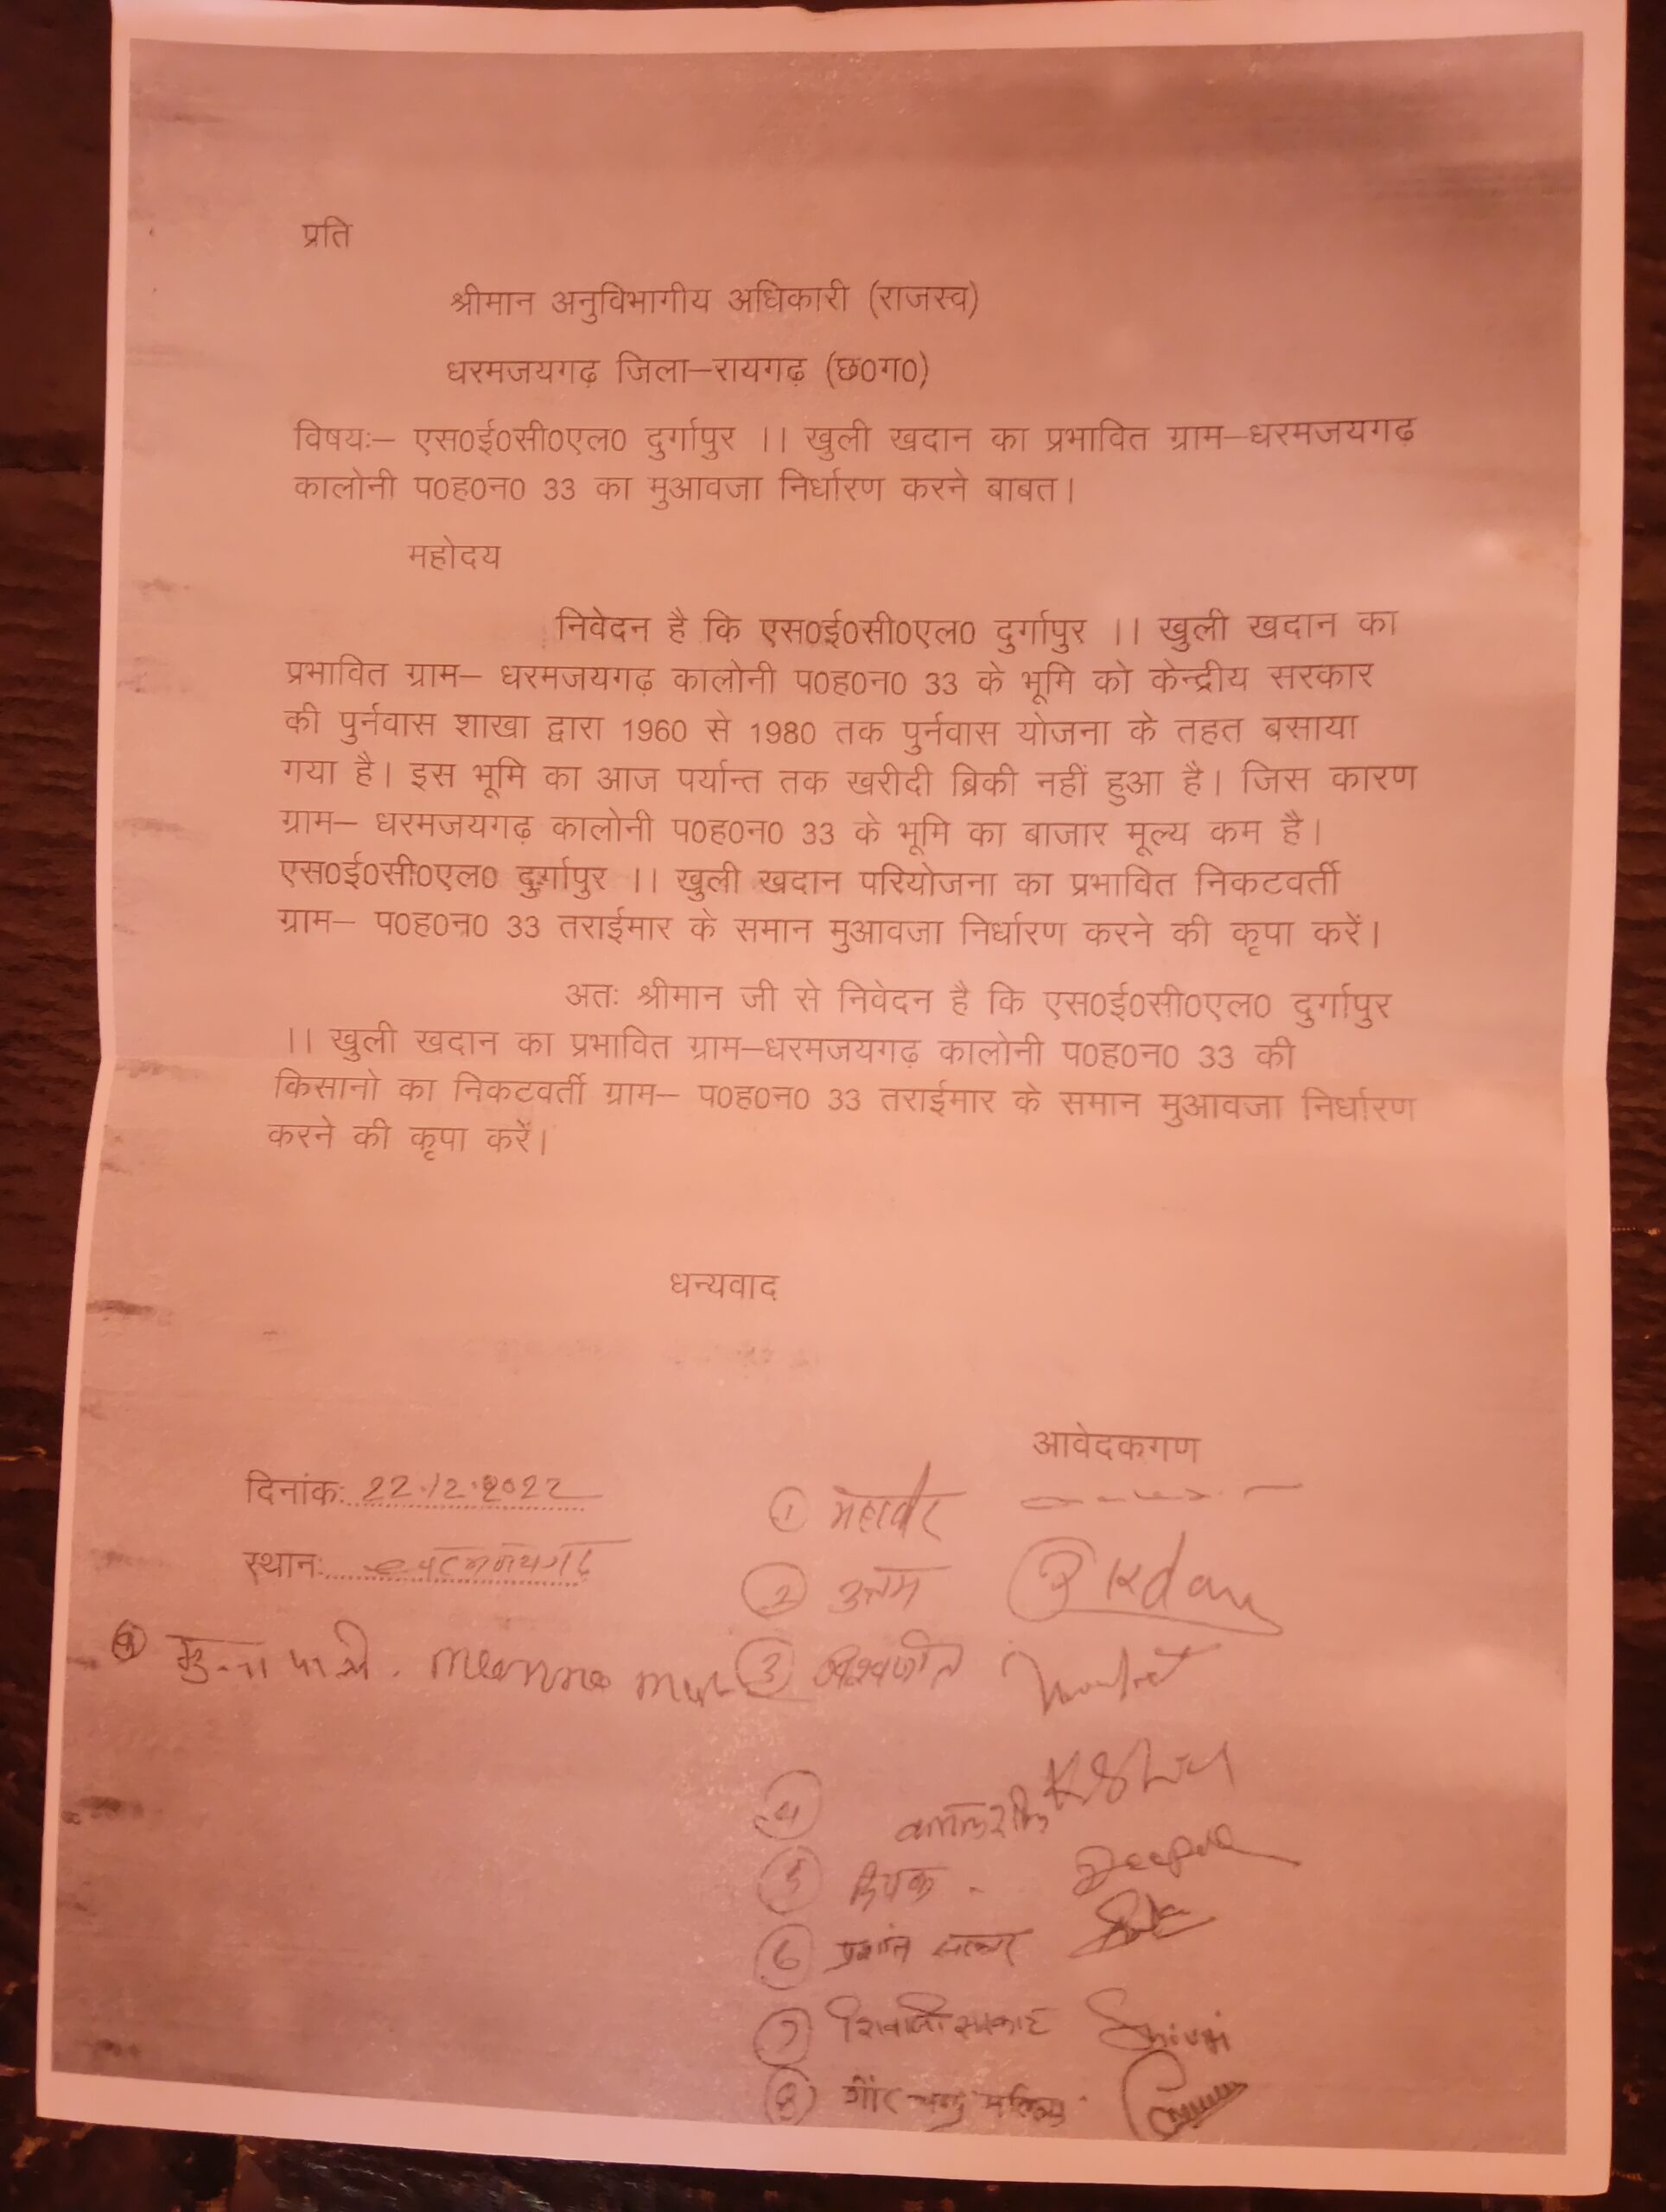 प्रति
श्रीमान अनुविभागीय अधिकारी (राजस्व)
धरमजयगढ़ जिला–रायगढ़ (छ0ग0)
विषयः– एस0ई0सी0एल0 दुर्गापुर ।। खुली खदान का प्रभावित ग्राम–धरमजयगढ़
कालोनी प0ह0न0 33 का मुआवजा निर्धारण करने बाबत।
महोदय
निवेदन है कि एस0ई0सी0एल0 दुर्गापुर ।। खुली खदान का
प्रभावित ग्राम– धरमजयगढ़ कालोनी प0ह0न0 33 के भूमि को केन्द्रीय सरकार
की पुर्नवास शाखा द्वारा 1960 से 1980 तक पुर्नवास योजना के तहत बसाया
गया है। इस भूमि का आज पर्यान्त तक खरीदी ब्रिकी नहीं हुआ है। जिस कारण
ग्राम– धरमजयगढ़ कालोनी प0ह0न0 33 के भूमि का बाजार मूल्य कम है।
एस0ई0सी0एल0 दुर्गापुर ।। खुली खदान परियोजना का प्रभावित निकटवर्ती
ग्राम– प0ह0न0 33 तराईमार के समान मुआवजा निर्धारण करने की कृपा करें।
अतः श्रीमान जी से निवेदन है कि एस0ई0सी0एल0 दुर्गापुर
।। खुली खदान का प्रभावित ग्राम–धरमजयगढ़ कालोनी प0ह0न0 33 की
किसानो का निकटवर्ती ग्राम– प0ह0न0 33 तराईमार के समान मुआवजा निर्धारण
करने की कृपा करें।
धन्यवाद
आवेदकगण
दिनांक: 22.12.2022
① महावीर
स्थान: धरमजयगढ़
② उत्तम
③ विश्वजीत
④
⑤ दिपक - Deepak
⑥ प्रशांत सरकार
⑦ शिवाजी सरकार Shivaji
⑧